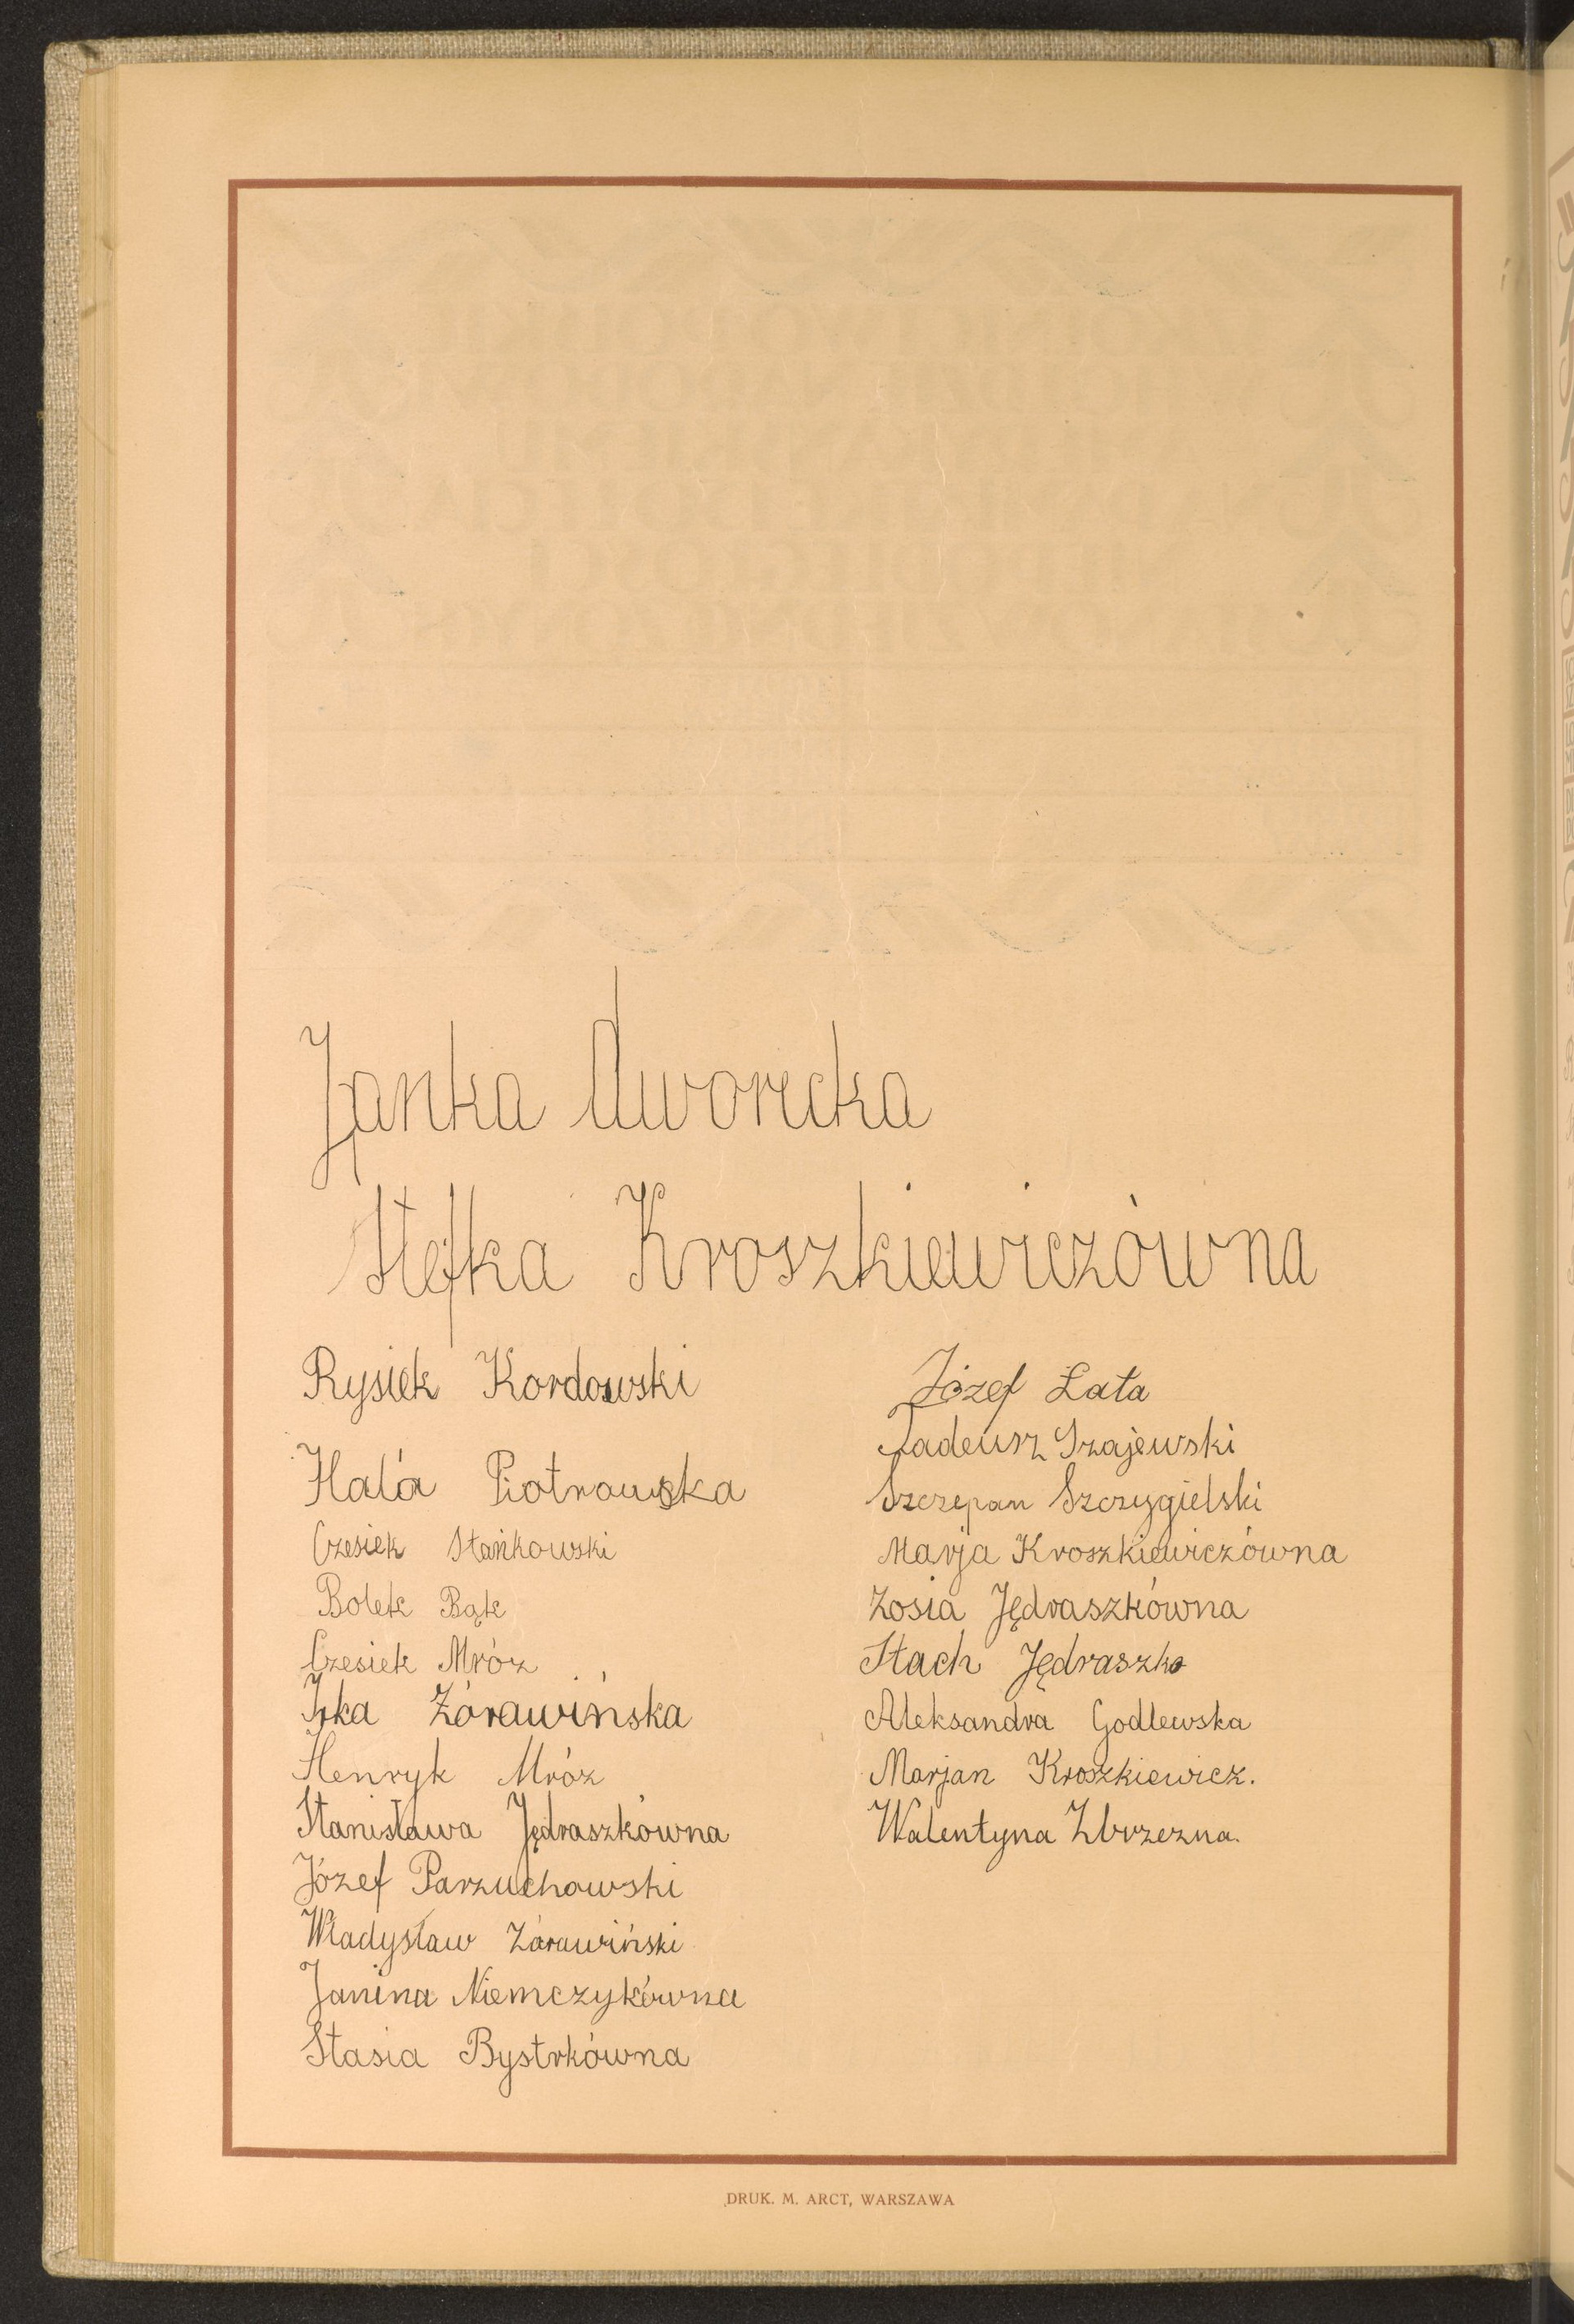 Janka Dworecka
Stefka Kroszkiewiczówna
Rysiek Kordowski
Hala Piotrowska
Czesiek Stańkowski
Bolek Bąk
Czesiek Mróz
Irka Żórawińska
Henryk Mróz
Stanisława Jędraszkówna
Józef Parzuchowski
Władysław Żórawiński
Janina Niemczykówna
Stasia Bystrkówna
Józef Łata
Tadeusz Szajewski
Szczepan Szczygielski
Marja Kroszkiewiczówna
Zosia Jędraszkówna
Stach Jędraszko
Aleksandra Godlewska
Marjan Kroszkiewicz.
Walentyna Zbrzezna.
DRUK. M. ARCT, WARSZAWA